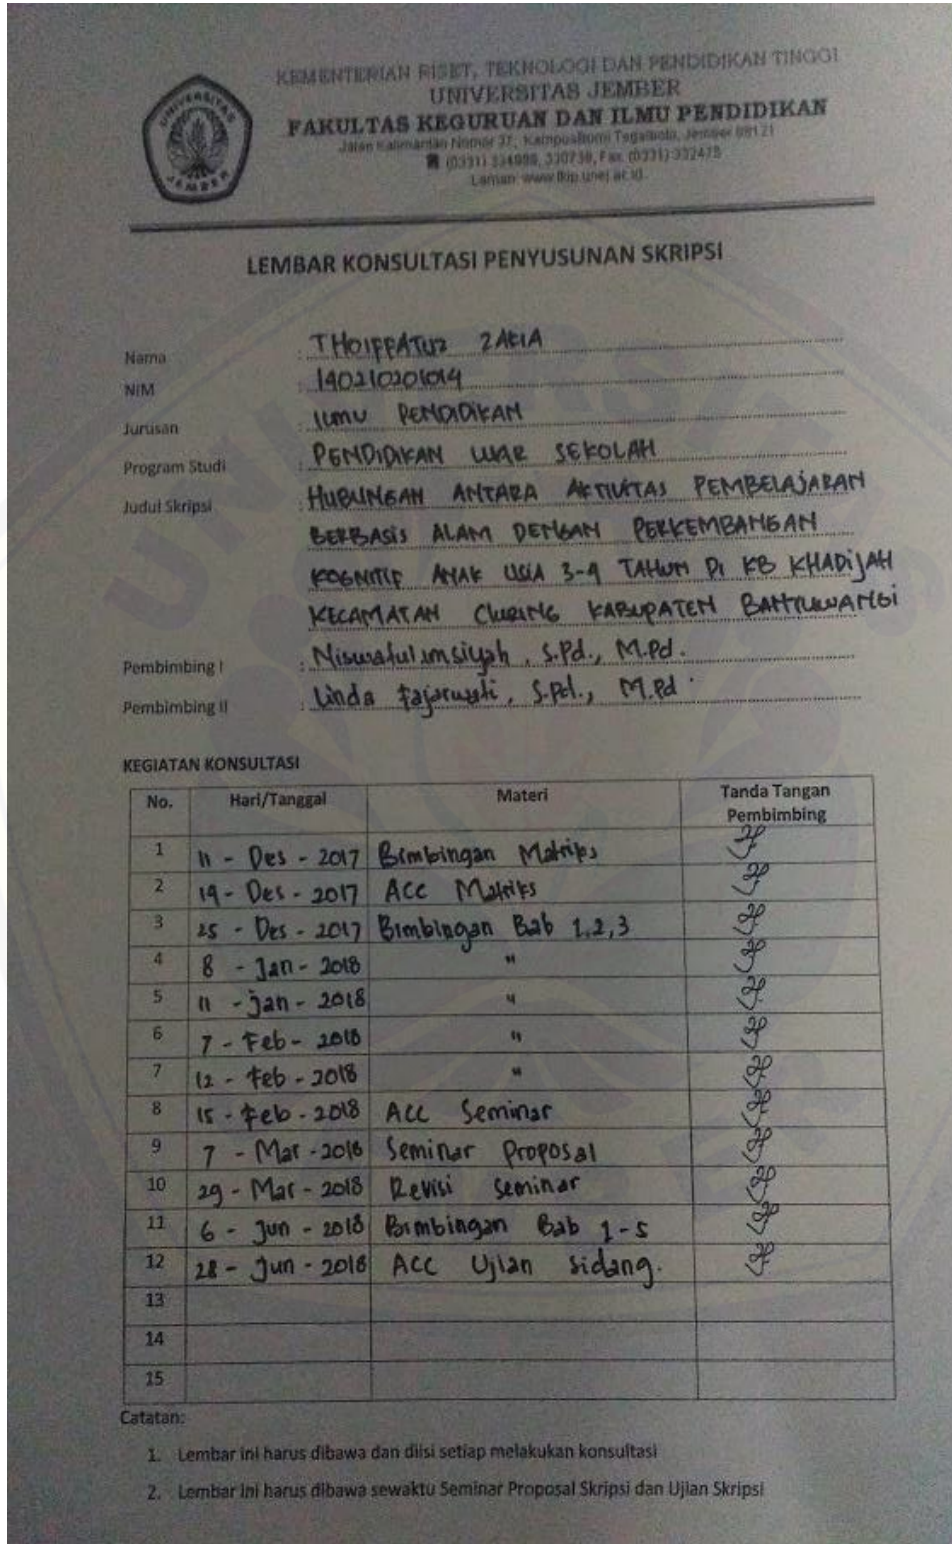 KEMENTERIAN RISET, TEKNOLOGI DAN PENDIDIKAN TINGGI
UNIVERSITAS JEMBER
FAKULTAS KEGURUAN DAN ILMU PENDIDIKAN
Jalan Kalimantan Nomor 37, Kampus Bumi Tegalboto, Jember 68121
(0331) 334988, 330738, Fax. (0331) 332475
Laman: www.fkip.unej.ac.id
UNIVERSITAS JEMBER
LEMBAR KONSULTASI PENYUSUNAN SKRIPSI
Nama : THOIFFATUZ ZAKIA
NIM : 140210201014
Jurusan : ILMU PENDIDIKAN
Program Studi : PENDIDIKAN LUAR SEKOLAH
Judul Skripsi : HUBUNGAN ANTARA AKTIVITAS PEMBELAJARAN
BERBASIS ALAM DENGAN PERKEMBANGAN
KOGNITIF ANAK USIA 3-4 TAHUN DI KB KHADIJAH
KECAMATAN CLURING KABUPATEN BANYUWANGI
Pembimbing I : Niswatul Imsiyah, S.Pd., M.Pd.
Pembimbing II : Linda Fajarwati, S.Pd., M.Pd.
KEGIATAN KONSULTASI
No. Hari/Tanggal Materi Tanda Tangan Pembimbing
1 11 - Des - 2017 Bimbingan Matriks
2 19 - Des - 2017 Acc Matriks
3 25 - Des - 2017 Bimbingan Bab 1,2,3
4 8 - Jan - 2018 "
5 11 - Jan - 2018 "
6 7 - Feb - 2018 "
7 12 - Feb - 2018 "
8 15 - Feb - 2018 Acc Seminar
9 7 - Mar - 2018 Seminar Proposal
10 29 - Mar - 2018 Revisi Seminar
11 6 - Jun - 2018 Bimbingan Bab 1-5
12 28 - Jun - 2018 ACC Ujian Sidang.
13
14
15
Catatan:
1. Lembar ini harus dibawa dan diisi setiap melakukan konsultasi
2. Lembar ini harus dibawa sewaktu Seminar Proposal Skripsi dan Ujian Skripsi